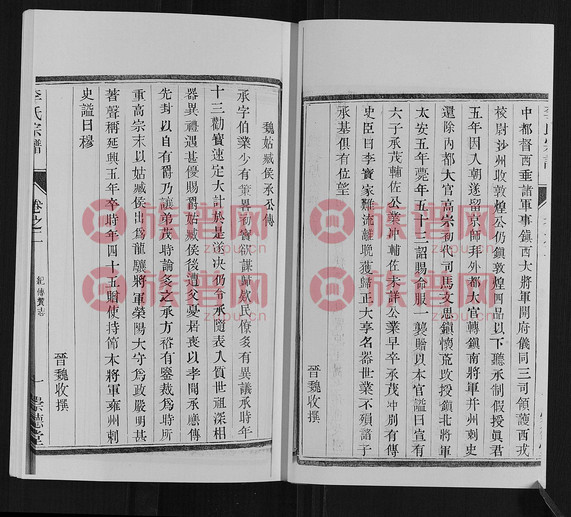 中都督西垂諸軍事鎮西大將軍開府儀同三司領護西戎
校尉沙州牧敦煌公仍鎮敦煌四品以下聽承制假授眞君
五年因入朝遂留京師拜外都大官轉鎮南將軍并州刺史
還除內都大官高宗初代司馬文思鎮懷荒改授鎮北將軍
太安五年薨年五十三詔賜命服一襲贈以本官諡曰宣有
六子承茂輔佐公業冲輔佐未詳公業早卒承茂冲別有傳
史臣曰李寶家難流離晚獲歸正大享名器世業不殞諸子
承基俱有位望
晉魏收撰
魏姑臧侯承公傳
承字伯業少有策畧初寶欲謀歸欵民僚多有異議承時年
十三勸寶速定大計於是遂決仍令承隨表入質世祖深相
器異禮遇甚優賜爵姑臧侯後遭父憂居喪以孝聞承應傳
先封以自有爵乃讓弟茂時論多之承方裕有鑒裁爲時所
重高宗末以姑臧侯出爲龍驤將軍滎陽太守爲政嚴明甚
著聲稱延興五年卒時年四十五贈使持節本將軍雍州刺
史諡曰穆
晉魏收撰
李氏宗譜
卷之一
紀傳贊志
一